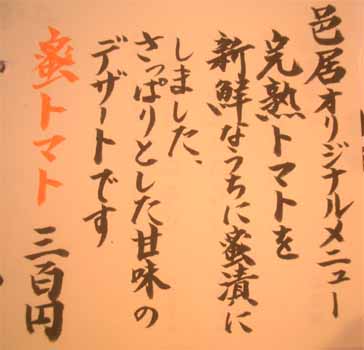 邑居オリジナルメニュー
完熟トマトを
新鮮なうちに蜜漬に
しました、
さっぱりとした甘味の
デザートです
蜜トマト 三百円